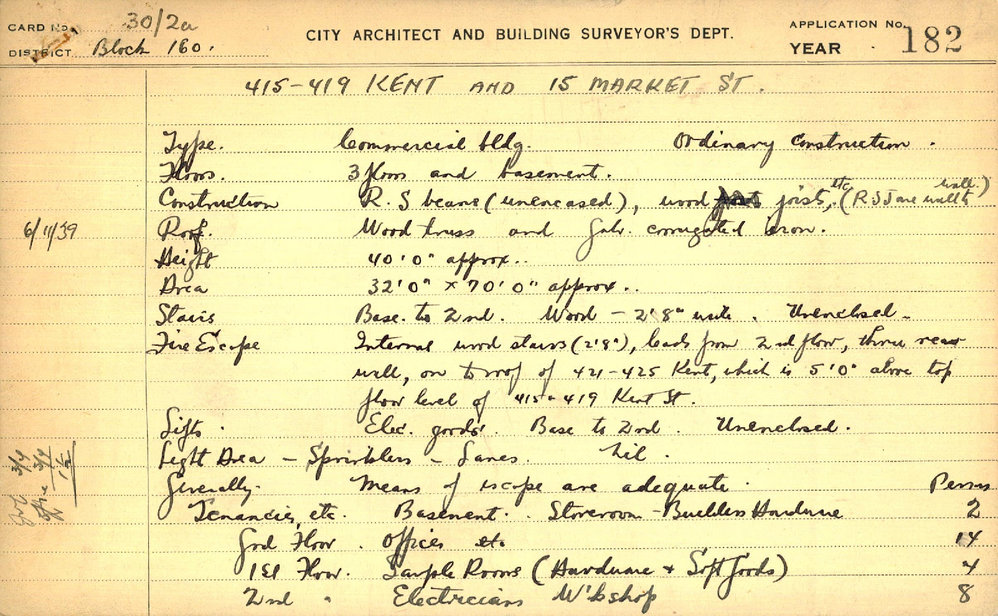 CARD No. 30/2a
DISTRICT Block 160.
CITY ARCHITECT AND BUILDING SURVEYOR'S DEPT.
APPLICATION No. 182
YEAR
415-419 KENT AND 15 MARKET ST.
Type. Commercial bldg. Ordinary Construction.
Floors. 3 floors and basement.
Construction R.S beams (unencased), wood joists, etc. (R.S.J are walls wall.)
6/11/39 Roof. Wood truss and Galv. corrugated iron.
Height 40'0" approx..
Area 32'0" x 70'0" approx..
Stairs Base. to 2nd. Wood - 2'8" wide. Unenclosed.
Fire Escape Internal wood stairs (2'8"), leads from 2nd floor, thru rear
wall, on to roof of 421-425 Kent, which is 5'0" above top
floor level of 415-419 Kent St.
Lifts. Elec. goods. Base to 2nd. Unenclosed.
Light Area - Sprinklers - Lanes. Nil.
Generally. Means of escape are adequate. Persons
Tenancies, etc. Basement. Storeroom - Builders Hardware 2
Grd Floor. Offices etc 14
1st Floor. Sample Rooms (Hardware & Soft Goods) 4
2nd " Electricians W'kshop 8